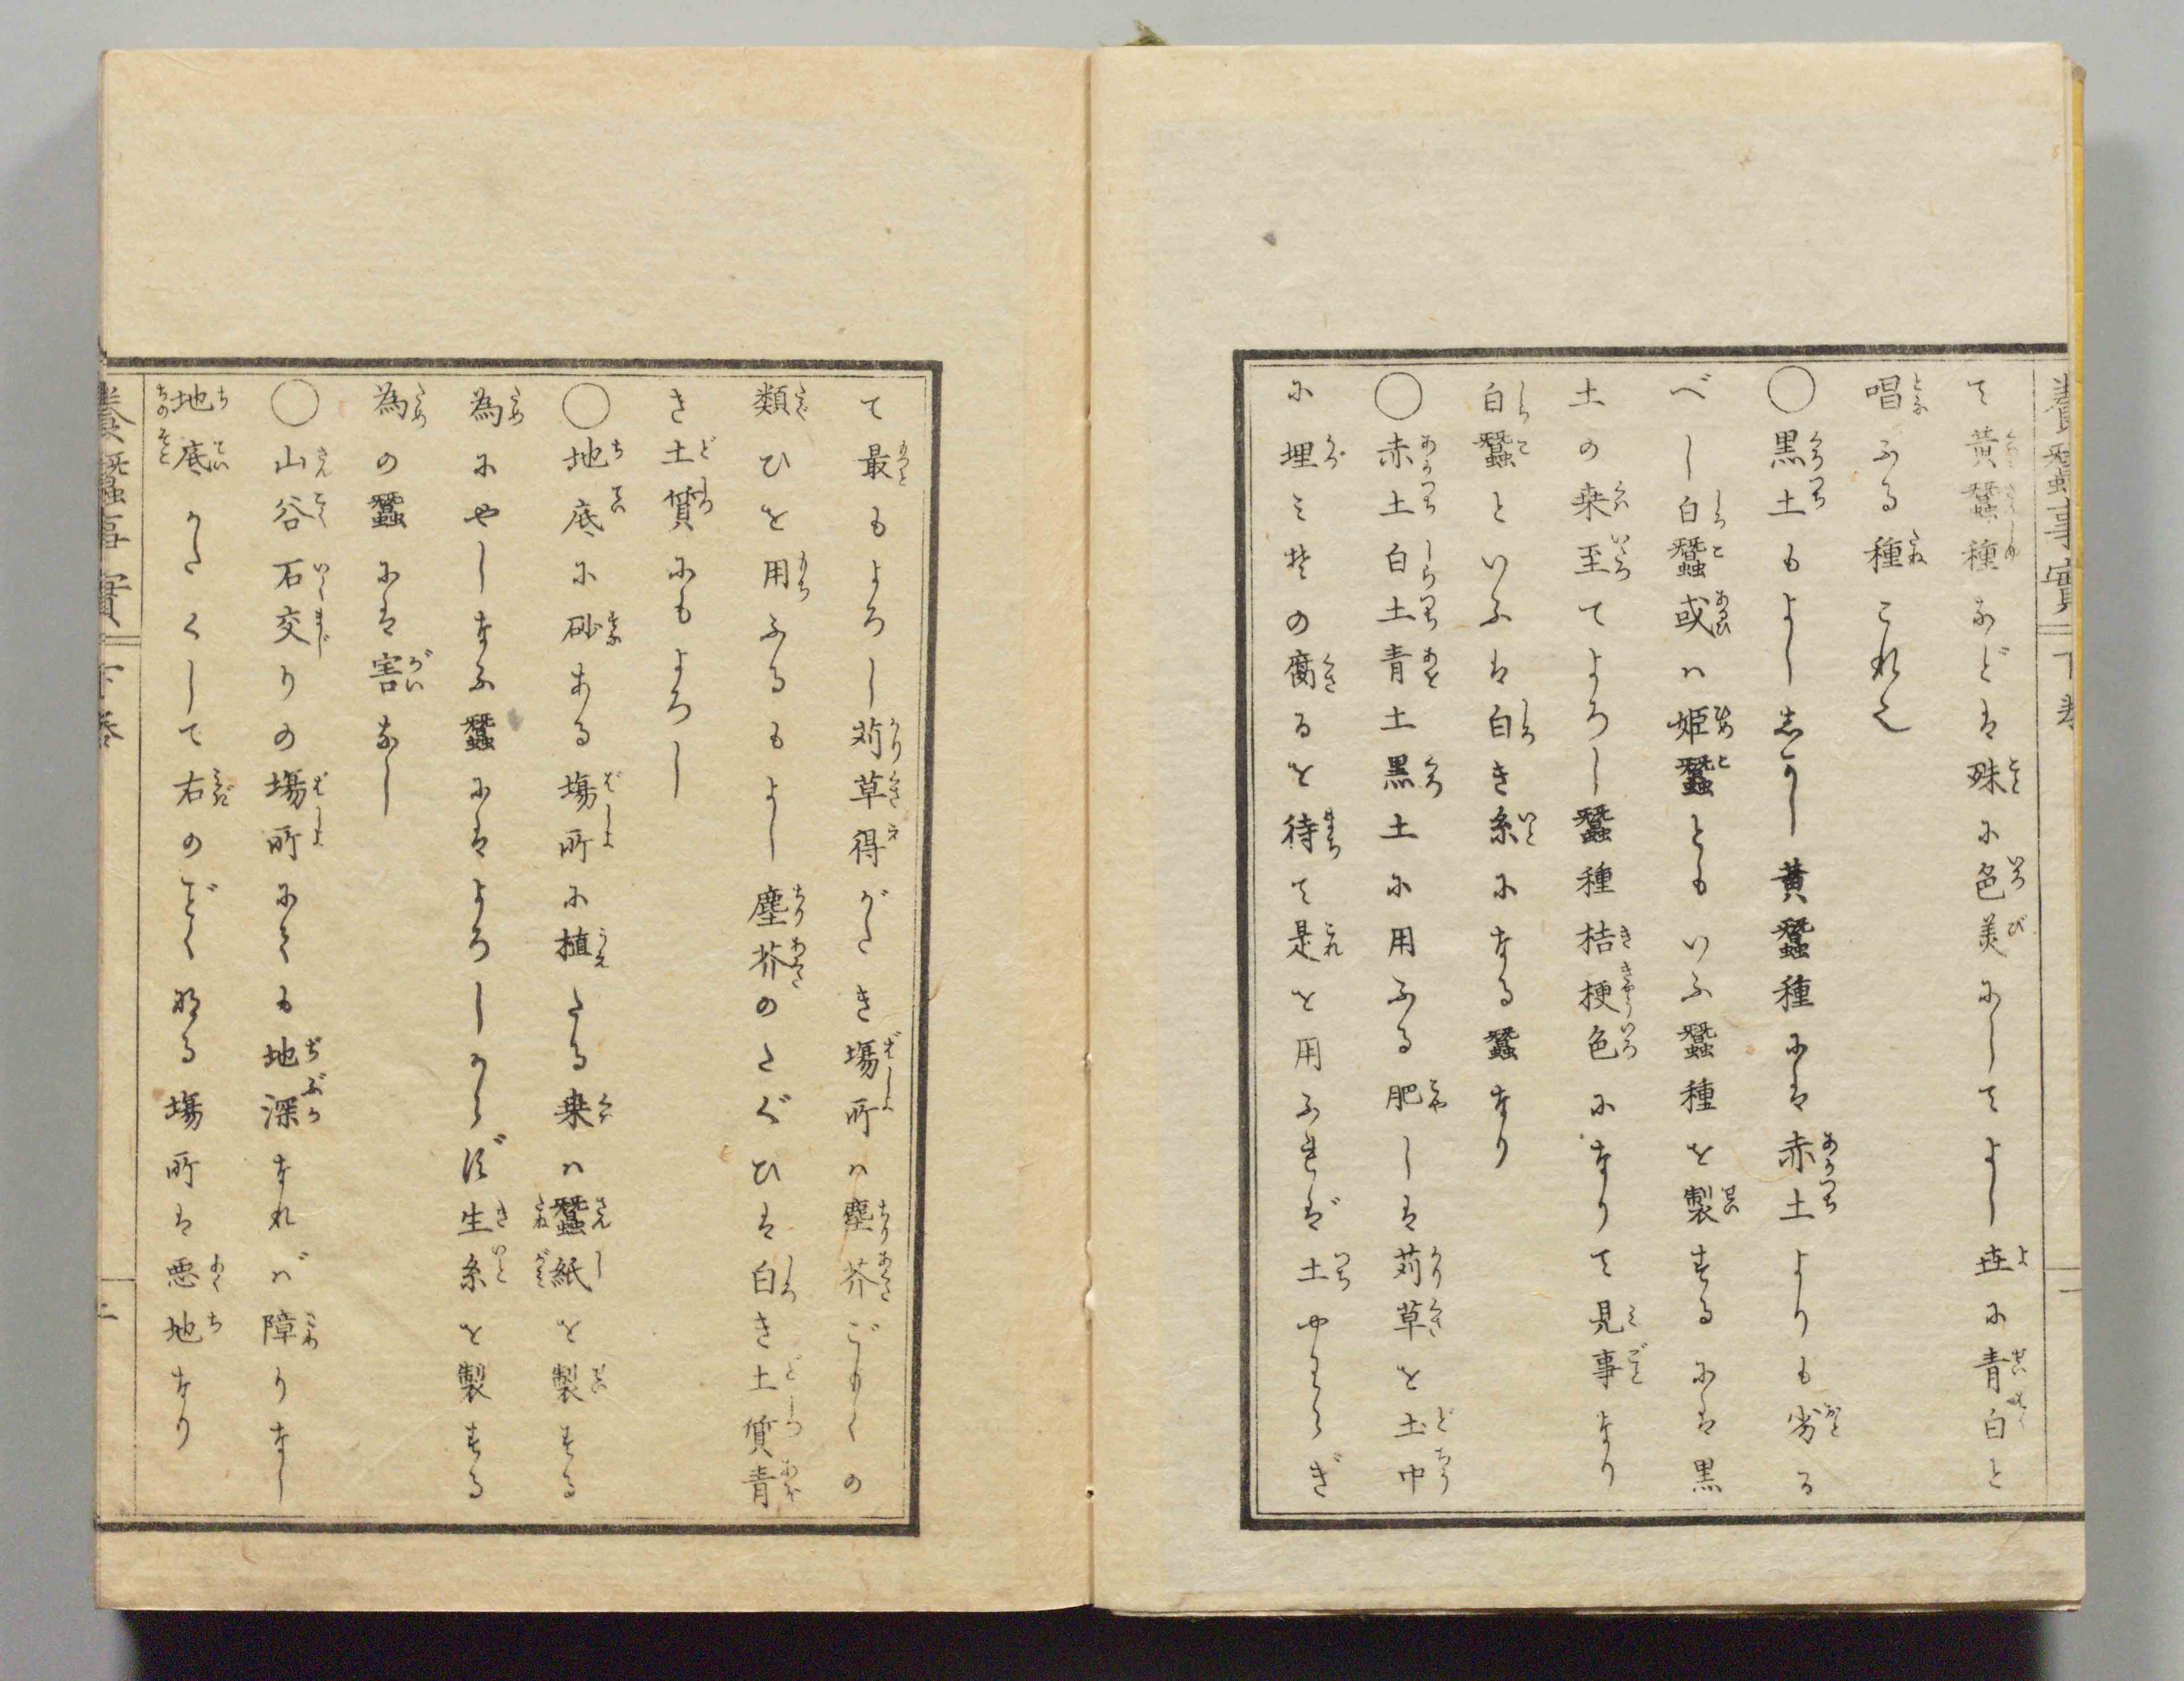 養蚕事實 下巻 一
て黄蚕種などは殊に色美にしてよし世に青白と
唱ふる種これ也
○黒土もよし去かし黄蚕種には赤土よりも劣る
べし白蚕或ハ姫蚕ともいふ蚕種を製するには黒
土の桒至てよろし蚕種桔梗色になりて見事なり
白蚕といふは白き糸になる蚕なり
○赤土白土青土黒土に用ふる肥しは苅草を土中
に埋ミ其の腐るを待て是を用ふれば土やわらぎ
て最もよろし苅草得がたき場所ハ塵芥ごもくの
類ひを用ふるもよし塵芥のたぐひは白き土質青
き土質にもよろし
○地底に砂ある場所に植たる桒ハ蚕紙を製する
為にやしなふ蚕にはよろしからず生糸を製する
為の蚕には害なし
○山谷石交りの場所にても地深なれば障りなし
地底かたくして右のごとくなる場所は悪地なり
養蚕事實 下巻 二